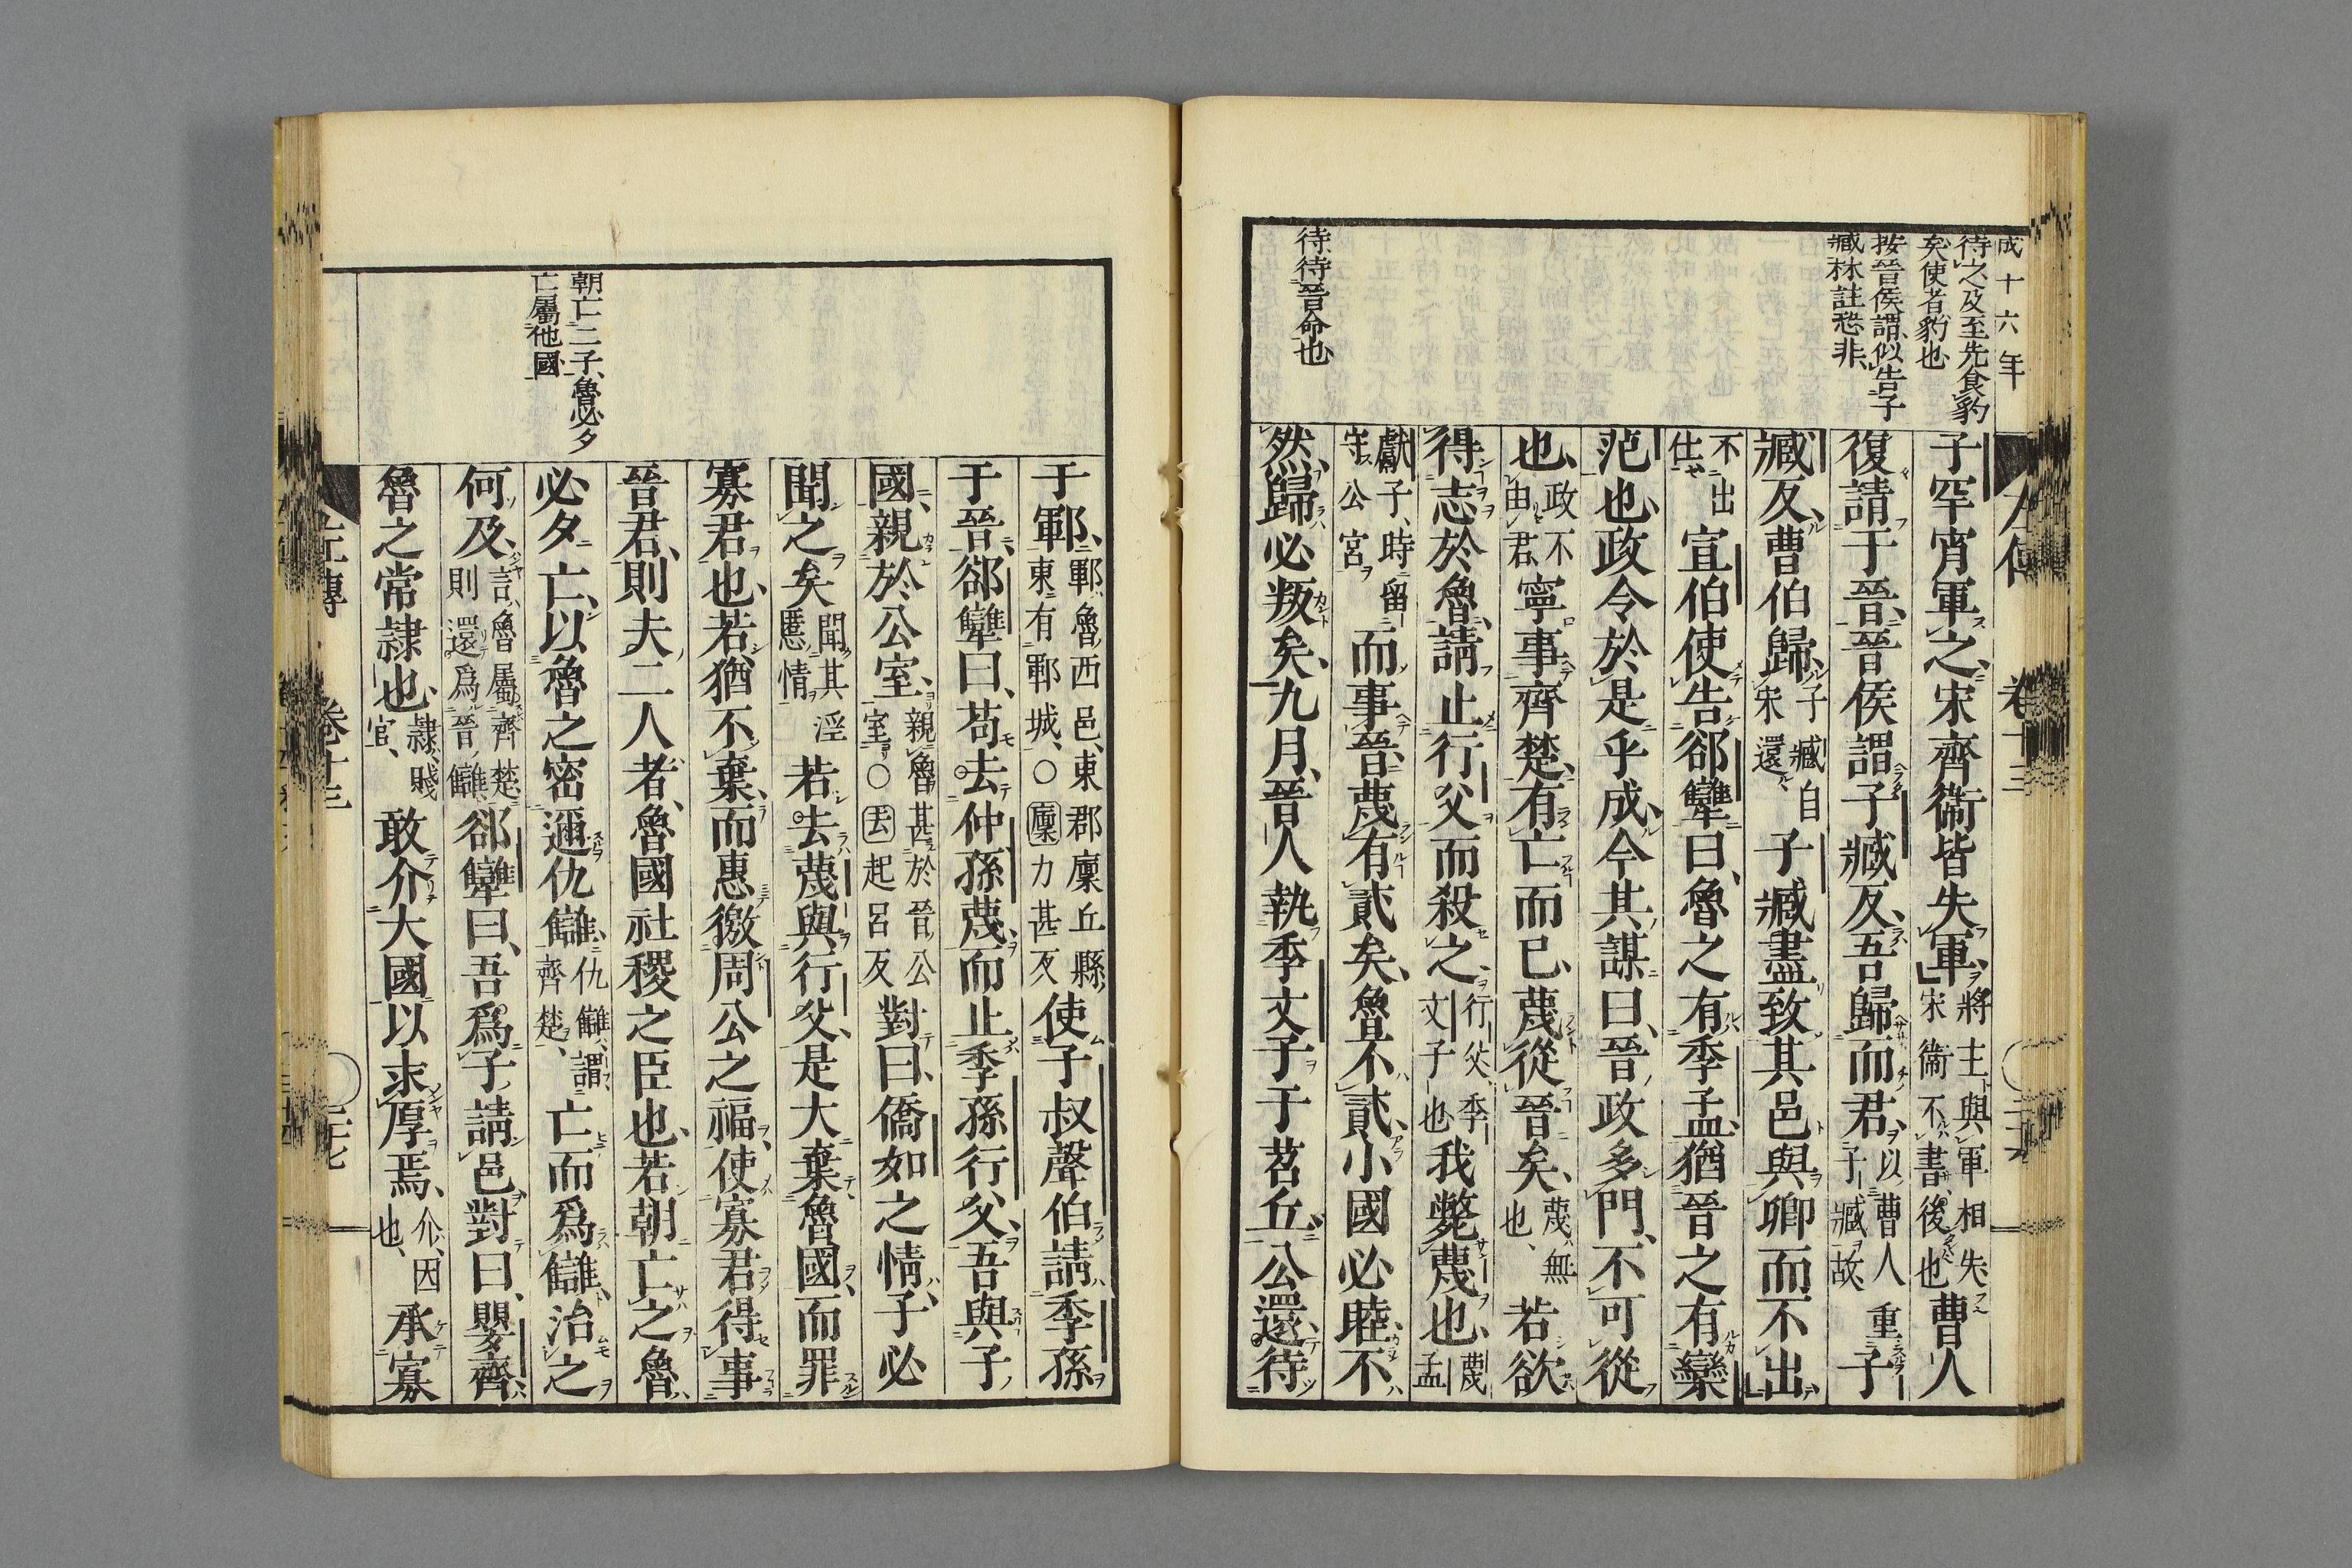 成十六年
待之及至先食豹
矣使者豹也
按晉侯謂似告子
臧林註愁非
待待晉命也
左傳 卷十三
子罕宵軍之宋齊衞皆失軍將主與軍相失宋衞不書後也曹人
復請于晉晉侯謂子臧反吾歸而君以曹人重子臧故子
臧反曹伯歸子臧自宋還子臧盡致其邑與卿而不出
不出仕宣伯使告郤犨曰魯之有季孟猶晉之有欒
范也政令於是乎成今其謀曰晉政多門不可從
也政不由君寧事齊楚有亡而已蔑從晉矣蔑無也若欲
得志於魯請止行父而殺之行父季文子也我斃蔑也蔑孟
獻子時留守公宮而事晉蔑有貳矣魯不貳小國必睦不
然歸必叛矣九月晉人執季文子于苕丘公還待
朝亡二子魯必夕
亡屬他國
于鄆鄆魯西邑東郡廩丘縣東有鄆城○廩力甚反使子叔聲伯請季孫
于晉郤犨曰苟去仲孫蔑而止季孫行父吾與子
國親於公室親魯甚於晉公室○去起呂反對曰僑如之情子必
聞之矣聞其淫慝情若去蔑與行父是大棄魯國而罪
寡君也若猶不棄而惠徼周公之福使寡君得事
晉君則夫二人者魯國社稷之臣也若朝亡之魯
必夕亡以魯之密邇仇讎仇讎謂齊楚亡而爲讎治之
何及言魯屬齊楚則還爲晉讎郤犨曰吾爲子請邑對曰嬰齊
魯之常隷也隷賤官敢介大國以求厚焉介因也承寡
左傳 卷十三 二十七